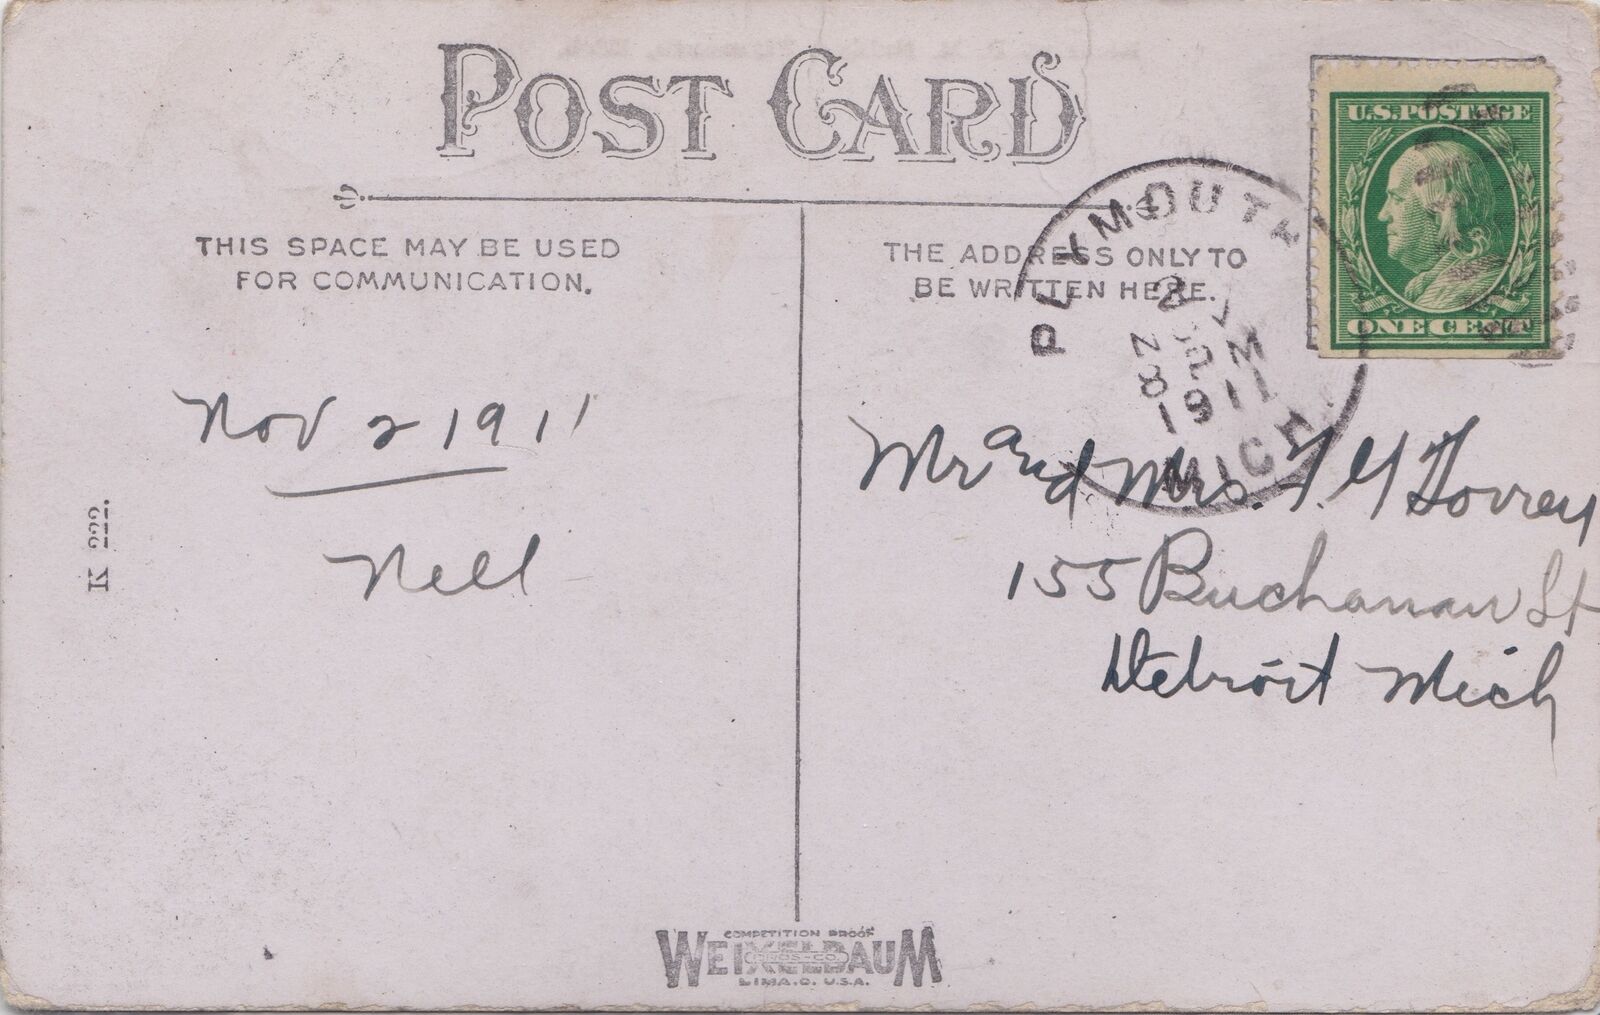 POST CARD
THIS SPACE MAY BE USED
FOR COMMUNICATION.
THE ADDRESS ONLY TO
BE WRITTEN HERE.
U.S. POSTAGE
ONE CENT
PLYMOUTH
28
1911
MICH.
Nov 2 1911
Nell
K 222.
Mr and Mrs.
155 Buchanan St
Detroit Mich
COMPETITION PROOF
WEIXELBAUM
BROS-CO.
LIMA. O. U.S.A.